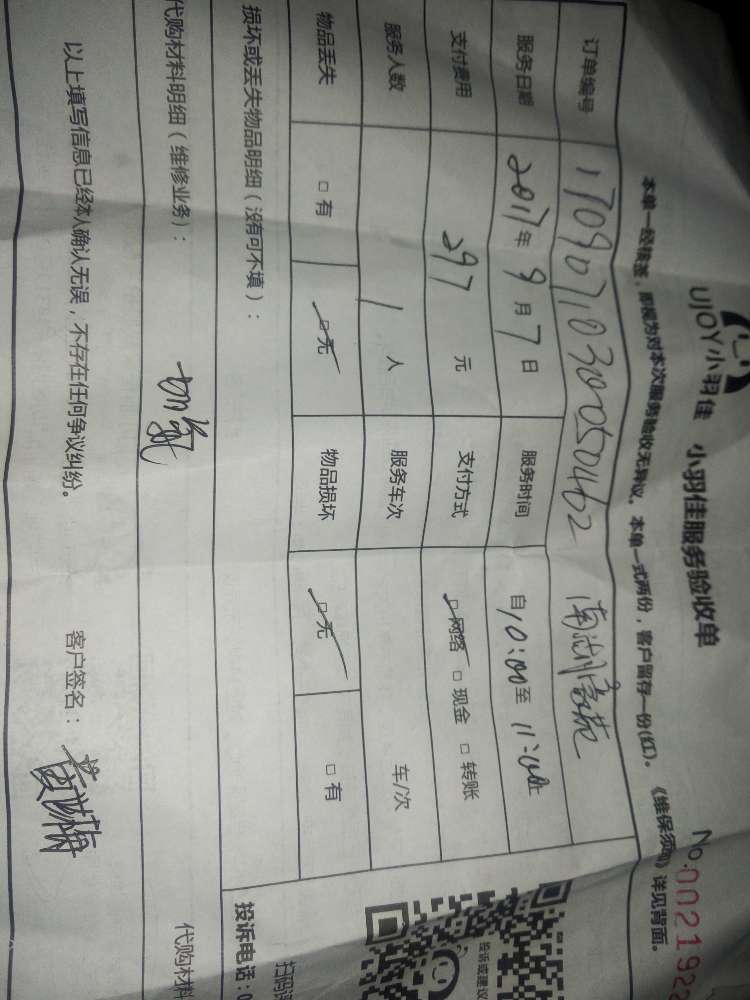 UJOY小羽佳 小羽佳服务验收单
No.002192
本单一经接签，即视为对本次服务验收无异议。本单一式两份，客户留存一份(红)。《维保须知》详见背面。
订单编号 17090710300050462 南湖
服务日期 2017年9月7日 服务时间 自10:00至11:00止
支付费用 297元 支付方式 网络 现金 转账
服务人数 1人 服务车次 车/次
物品丢失 有 无 物品损坏 无 有
损坏或丢失物品明细（没有可不填）：
投诉或建议
扫码
投诉电话：0
代购材料明细（维修业务）：
加氟
代购材料
以上填写信息已经本人确认无误，不存在任何争议纠纷。 客户签名：